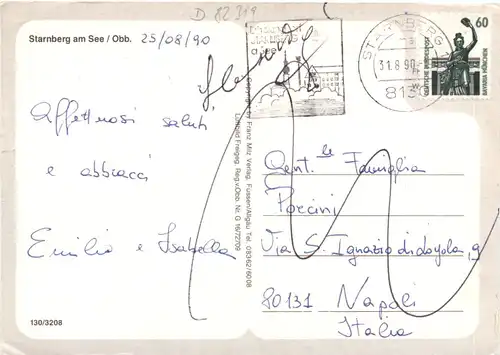 D 82319
Starnberg am See / Obb. 25/08/90
Affettuosi saluti
e abbracci
Emilio e Isabella
130/3208
Copyright by Franz Milz Verlag, Füssen/Allgäu Tel. 08362/6008
Luftbild Freigeg. Reg.v.Obb. Nr. G 16/72709
STARNBERG 1
31.8.90
8130
60
DEUTSCHE BUNDESPOST
BAVARIA MÜNCHEN
Gent.le Famiglia
Porcini
Via S. Ignazio di Loyola, 9
80131 Napoli
Italia